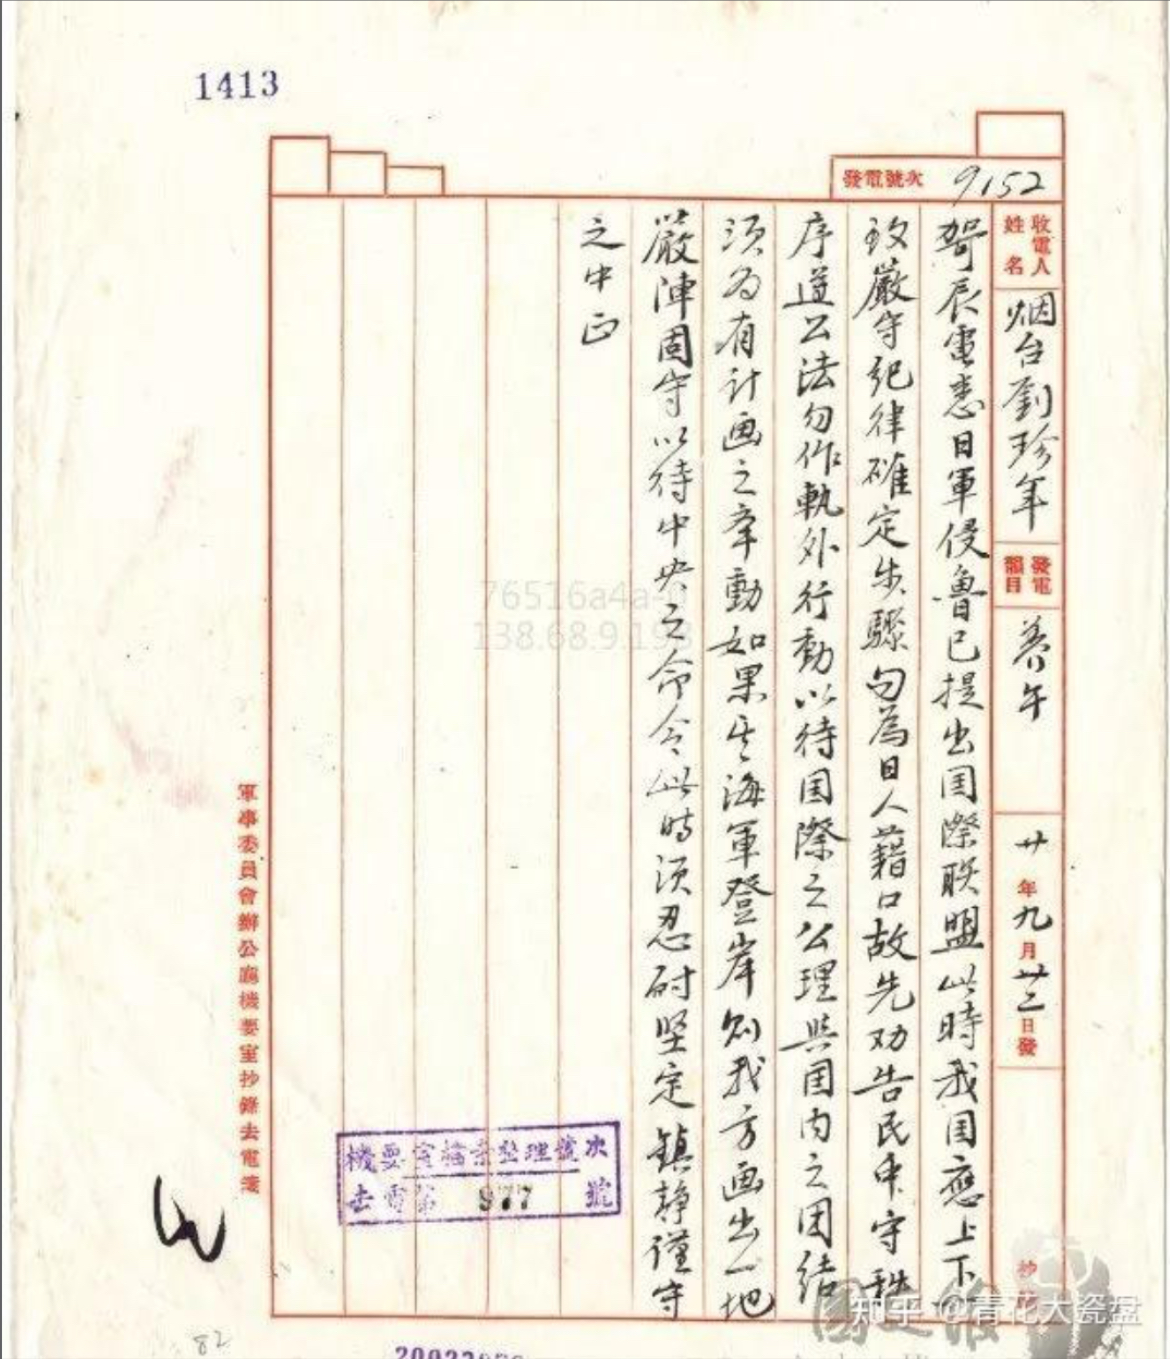 1413
發電號次 9152
收電人姓名 烟台劉珍年 發電韻目 養午 廿年九月廿二日發 抄
哿辰電悉日軍侵魯已提出国際联盟此時我国應上下一
致嚴守紀律確定步驟勿為日人藉口故先劝告民众守秩
序遵公法勿作軌外行動以待国際之公理與国内之团结
须为有计画之举動如果其海軍登岸则我方画出一地
嚴陣固守以待中央之命令此時须忍耐坚定鎮静谨守
之中正
機要室檔案整理號次
去電第 977 號
軍事委員會辦公廳機要室抄錄去電箋
82
76516a4a-
138.68.9.198
國史館
知乎 @青花大瓷盘